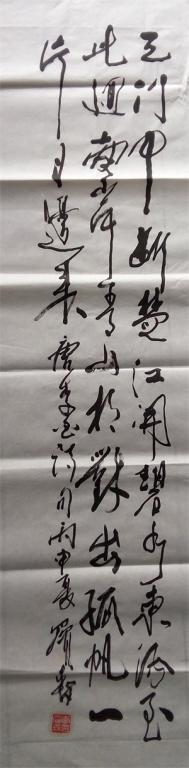 天门中断楚江开碧水东流至
此迴两岸青山相對出孤帆一
片日邊来唐李白诗句丙申夏